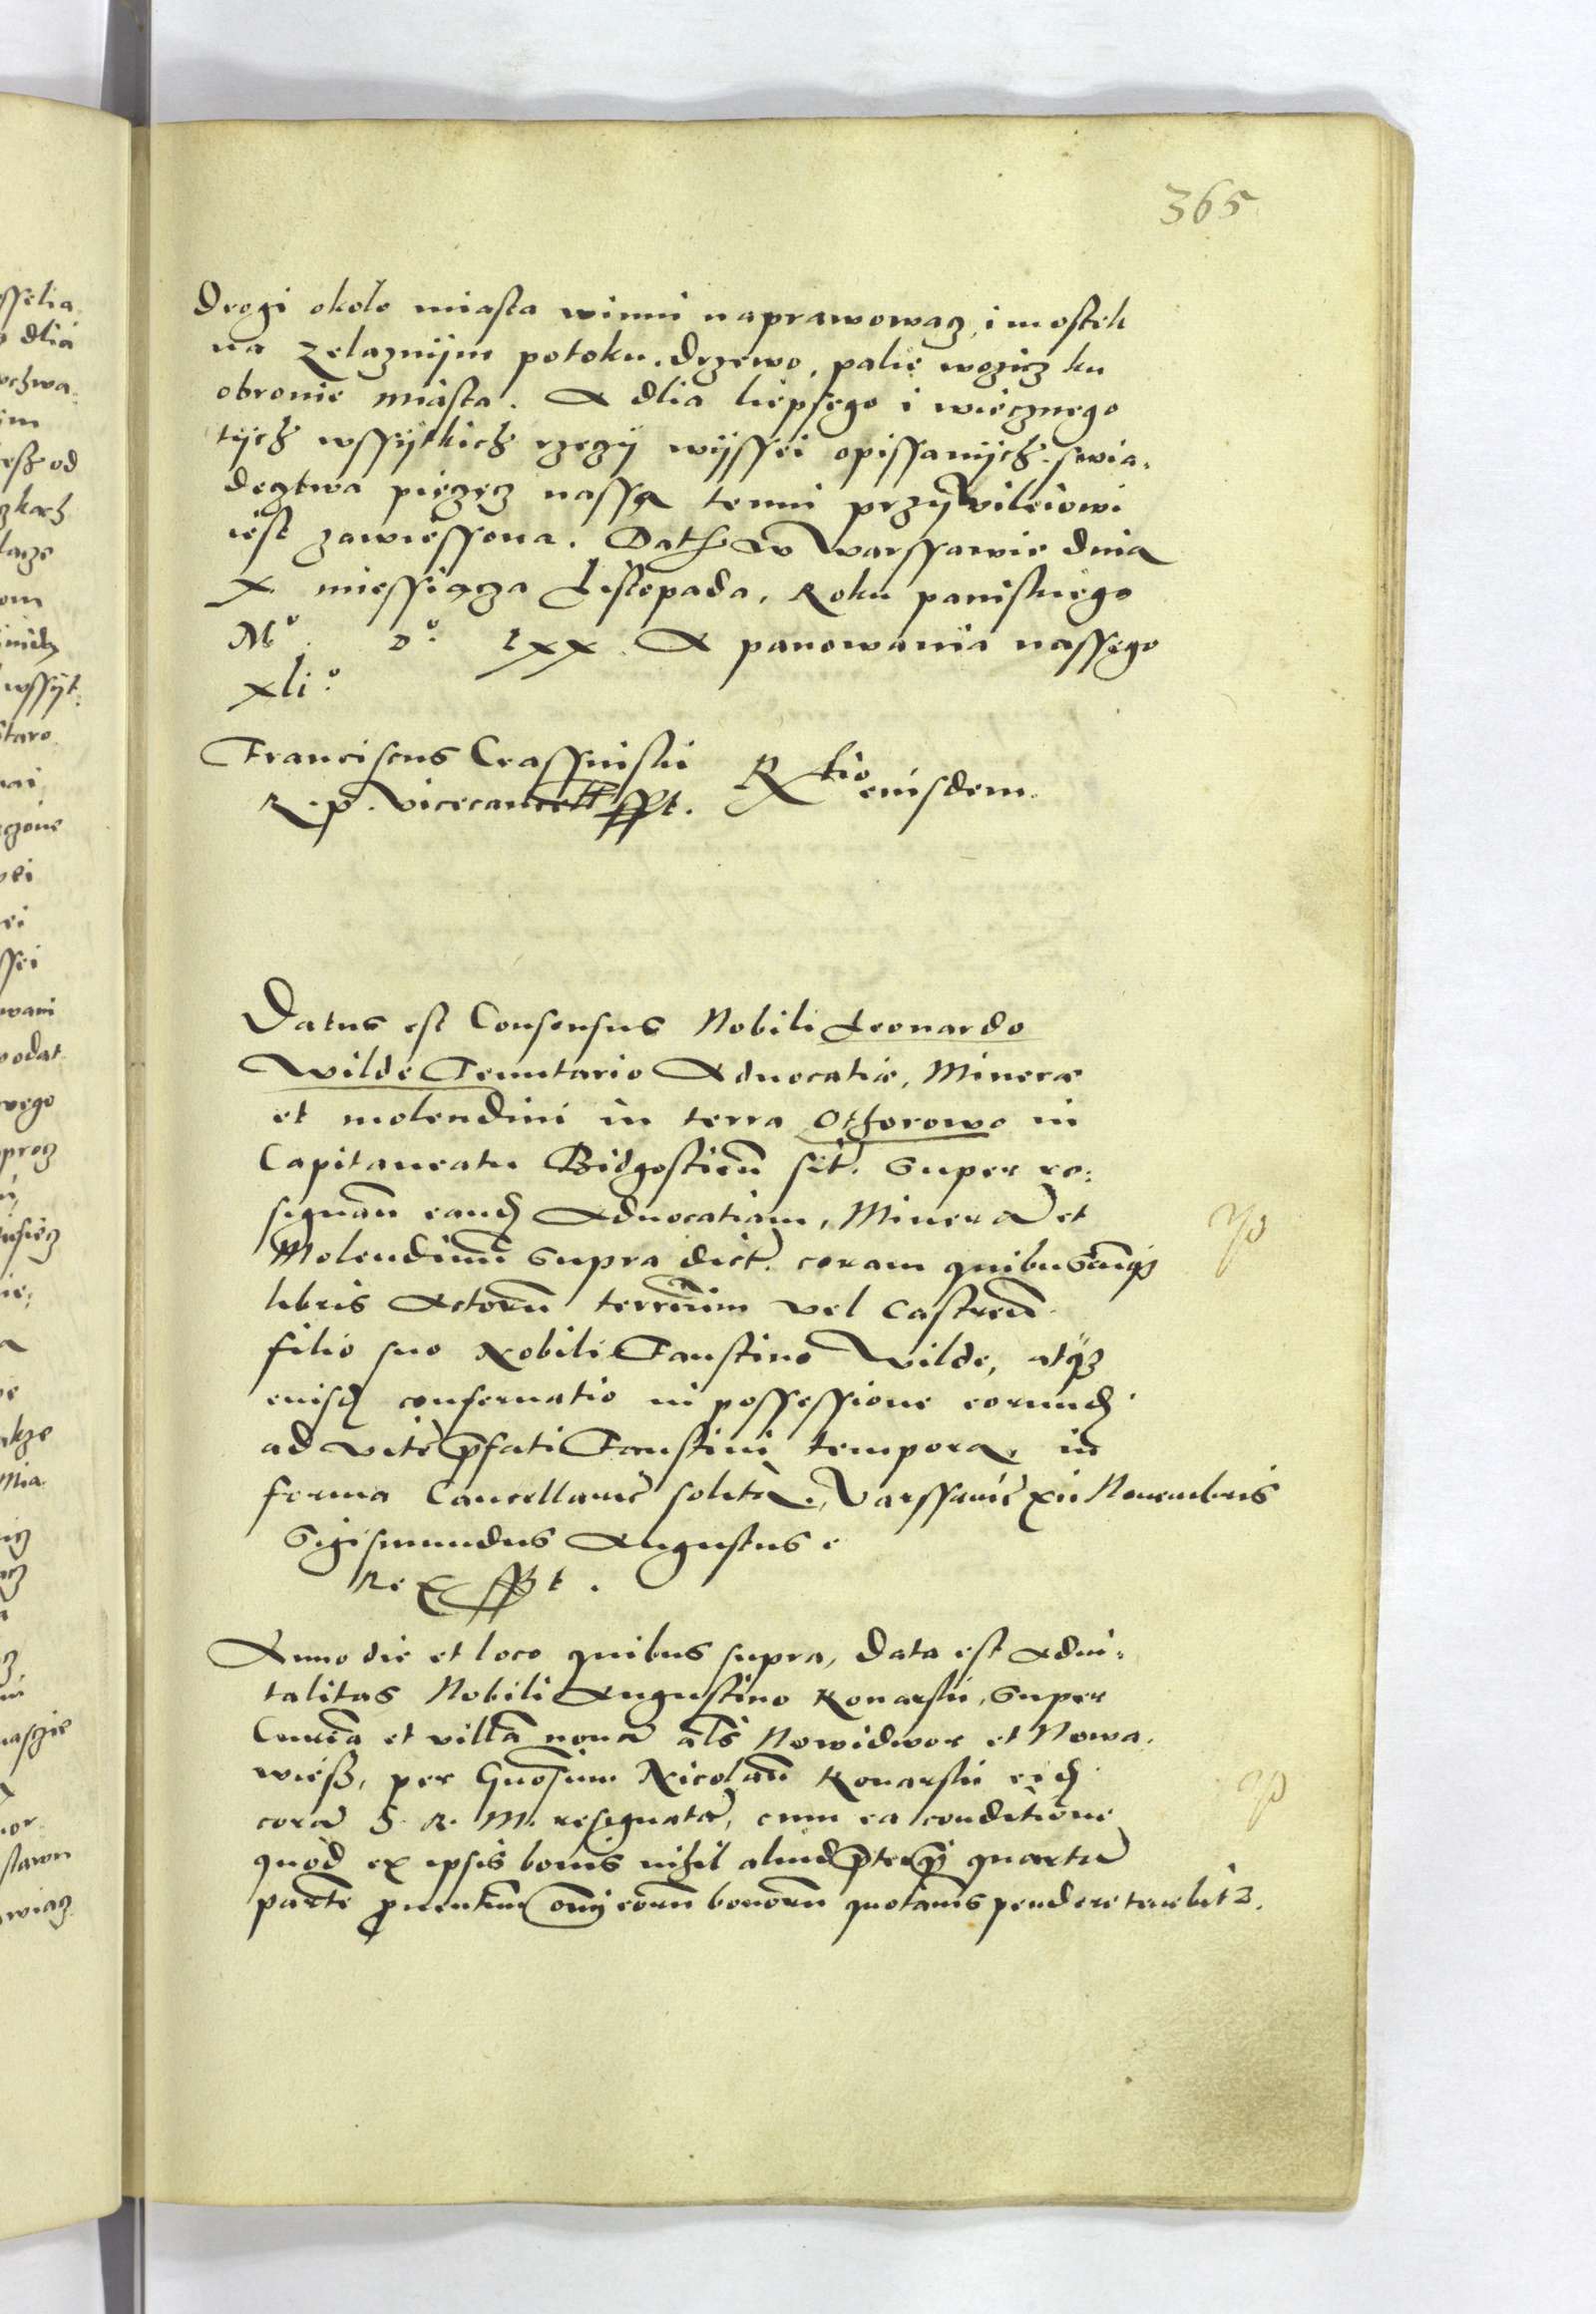 365
Drogi około miasta winni naprawowacz, i mostek
na zelaznijm potoku. drzewo, palie wozicz ku
obronie miasta. A dlia liepsego i wiecznego
tijch wssijtkich rzeczij wijssei opissanijch swia,
deztwa pieczęcz nassa temu przijwileiowi
iest zawiessona. Dath w Warssawie dnia
X. miessiącza Listopada, Roku paniskiego
Mº. Dº. lxx. A panowania nassego
xliº.
Franciscus Crassinskii
R. p. Vicecancell sspt. Rtio eiusdem.
Datus est Consensus Nobili Leonardo
Wilde Tenutario Aduocatiæ, Mineræ
et molendini in terra Othorowo in
Capitaneatu Bidgostieñ sit. super re:
signañ eand Aduocatiam, Minerā et
Molendinū supra dict. coram quibuscunq
libris Actorū terreñium vel Castreñ
filio suo Nobili Faustino Wilde, atqz
eiusd conseruatio in possessione eorund
ad vitę p̄fati Faustini tempora, in
forma Cancellarię solita. Varssauię xii Nouembris
Sigismundus Augustus
Rex sspt.
Anno die et loco quibus supra, Data est Adui:
talitas Nobili Augustino Konarskii, super
Curiā et villā nouā als Nowidwor et Nowa,
wiesß, per Gnosum Nicolaū Konarskii eid
corā S. R. M. resignatā, cum ea conditione
quod ex ipsis bonis nihil aliud p̄terq̄ quartā
partē prouentuū eorū bonorū quotannis pendere tenebit2.